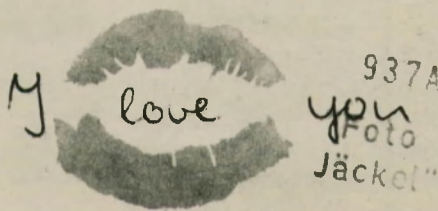 I love you
937A
Foto
Jäckel"